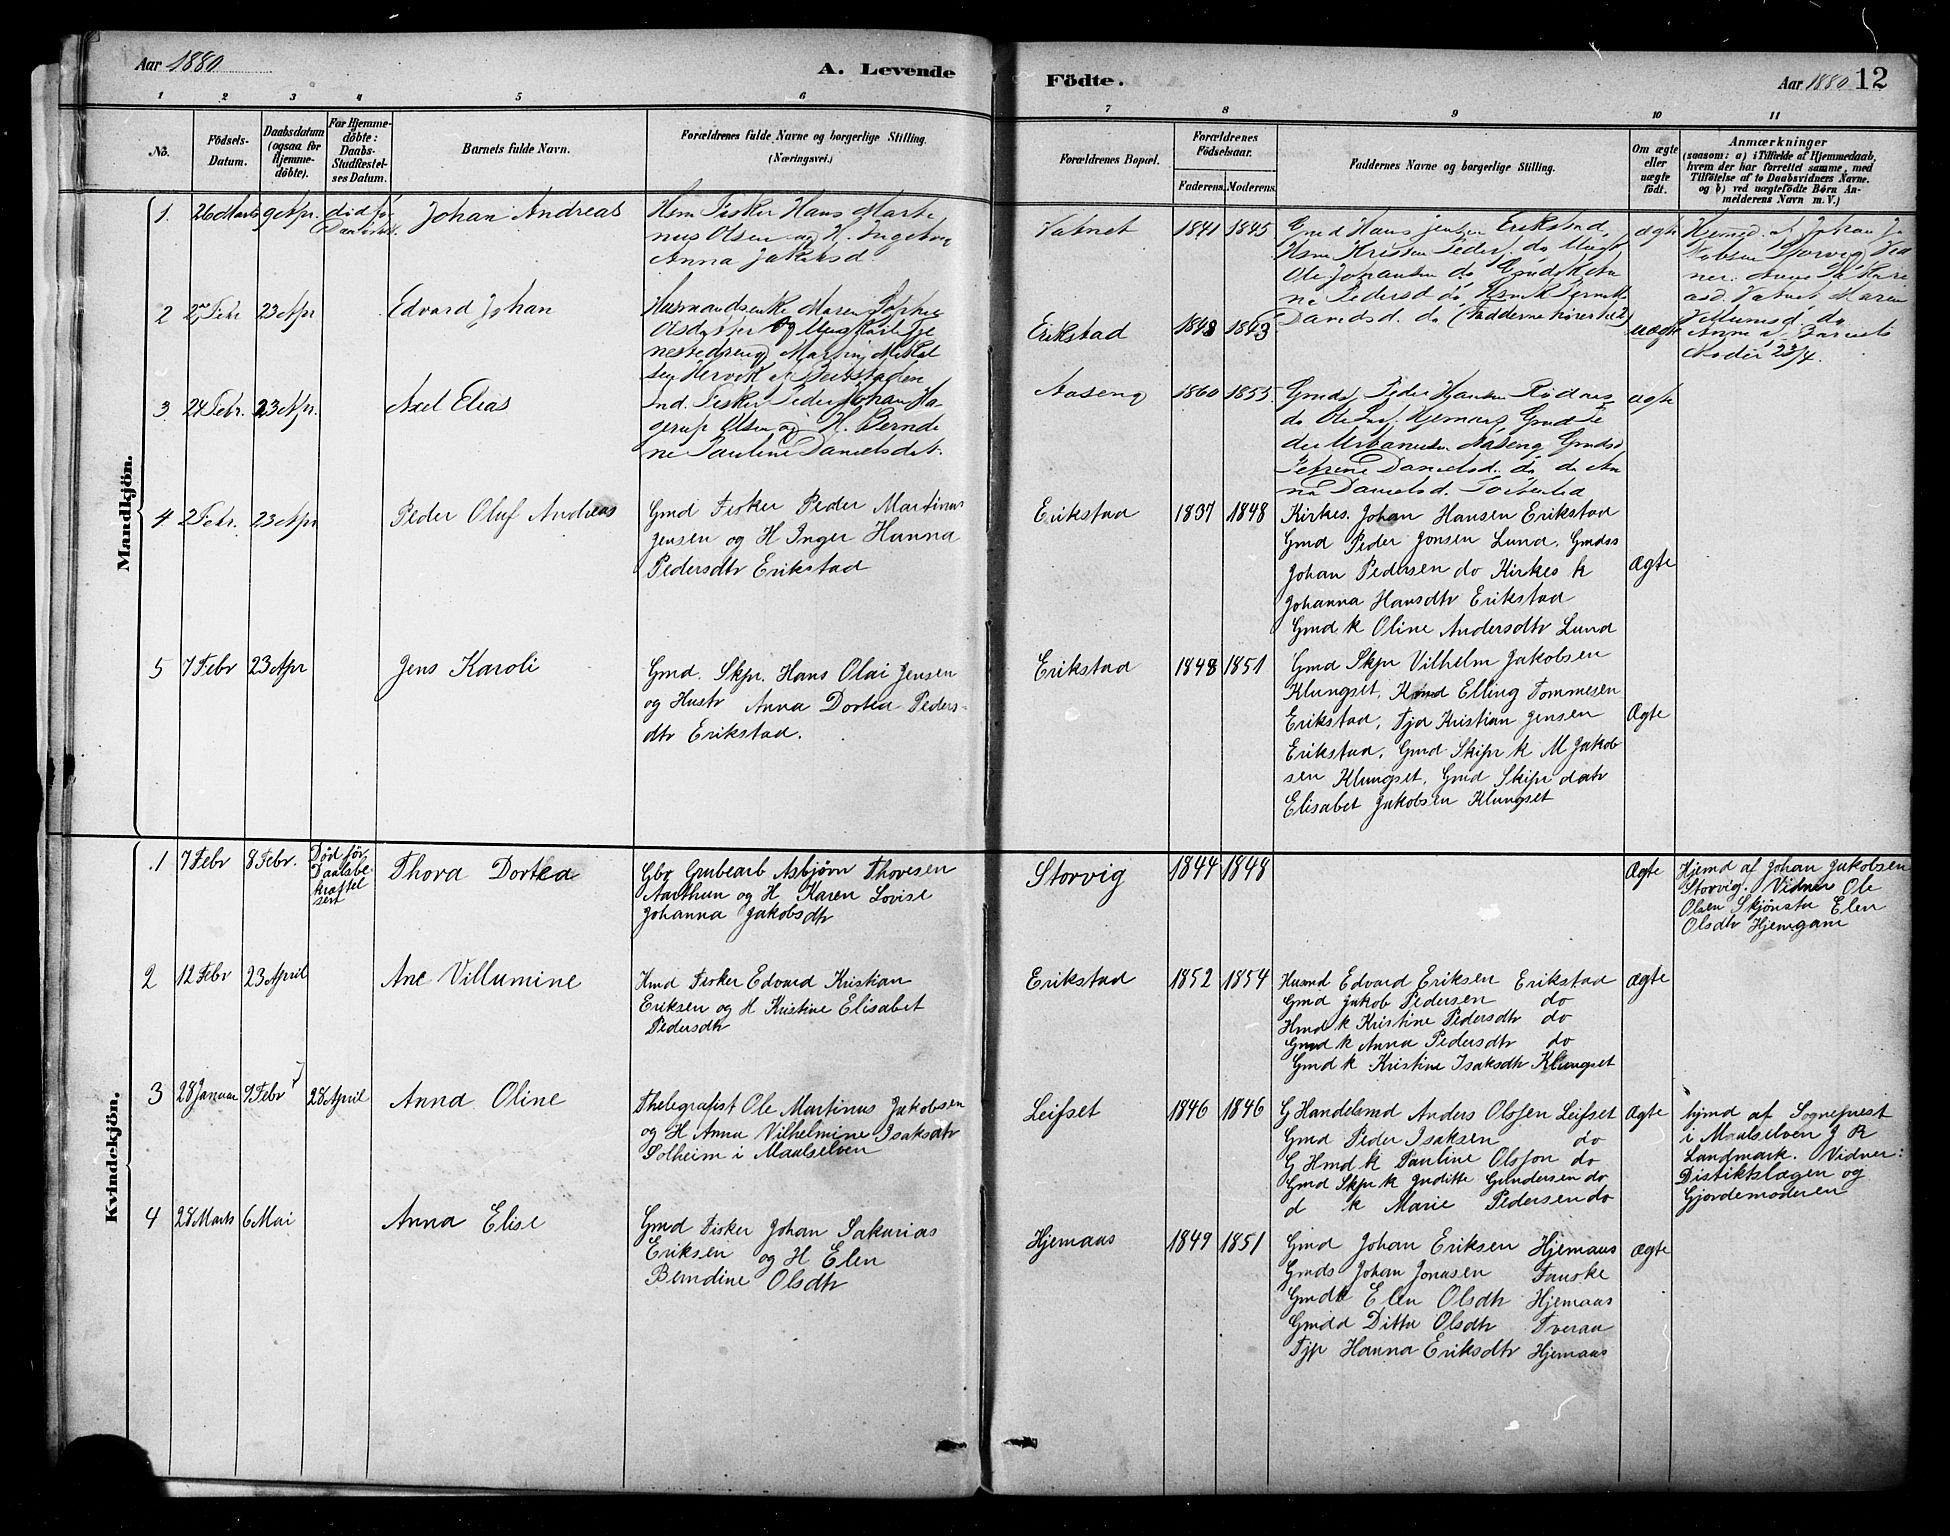 Aar 1880
A. Levende
1 2 3 4 5 6
No.
Födsels-
Datum.
Daabsdatum
(ogsaa for
Hjemme-
döbte).
For Hjemme-
döbte:
Daabs-
Stadfæstel-
ses Datum.
Barnets fulde Navn.
Forældrenes fulde Navne og borgerlige Stilling.
(Næringsvei.)
Mandkjön.
1. 26 Marts 9 Apr. Johan Andreas
Hsm Fisker Hans Marti
nus Olsen og H. Ingebor
Anna Jakobsd.
2 27 Febr 23 Apr Edvard Johan
Maren Sophie
Martin Mikkel
sen Hervik
3 24 Febr. 23 Apr. Axel Elias
Ind. Fisker Peder Johan Ha
gerup Olsen og H. Bernde
ne Pauline Danielsdat.
4 2 Febr. 23 Apr Peder Oluf Andreas
Gmd Fisker Peder Martinus
Jensen og H Inger Hanna
Pedersdtr Erikstad
5 7 Febr 23 Apr Jens Karoli
Gmd. Skpr. Hans Olai Jensen
og Hustr Anna Dortea Peders-
dtr Erikstad.
Kvindekjön.
1 7 Febr 8 Febr. Død før
Daabsbe
kræftel
sen
Thora Dortea
Gbr Grubearb Asbjørn Thoresen
Aarthun og H Karen Lovise
Johanna Jakobsdtr
2 12 Febr 23 April Ane Villumine
Hmd Fisker Edvard Kristian
Eriksen og H Kristine Elisabet
Pedersdtr
3 28 Januar 9 Febr 28 April Anna Oline
Thelegrafist Ole Martinus Jakobsen
og H Anna Vilhelmine Isaksdtr
Solheim i Maalselven
4 28 Marts 6 Mai Anna Elise
Gmd Fisker Johan Sakarias
Eriksen og H Elen
Berndine Olsdtr
Födte.
Aar 1880 12
7 8 9 10 11
Forældrenes Bopæl.
Forældrenes
Födselsaar.
Faderens. Moderens.
Faddernes Navne og borgerlige Stilling.
Om ægte
eller
uægte
födt.
Anmærkninger
(saasom: a) i Tilfælde af Hjemmedaab,
hvem der har forrettet samme, med
Tilföielse af to Daabsvidners Navne.
og b) ved uægtefödte Börn An-
melderens Navn m. V.)
Vatnet 1841 1845
Gmd Hans Jensen Erikstad,
Hsm Kristen Peders. do
Ole Johansen do
ne Pedersd do
Danielsd. do
ægte
Hjemd. af Johan Ja
kobsen Storvig Vid
ner.
Vatnet Maren
Villumsd. do
Erikstad 1848 1843 uægte
Barnets
Moder 23/4.
Aaseng 1860 1855
Gmd. Peder Hansen Rödaas
do Ole Hjemaas Gmd Pe
der Urbanusen Aaseng Gmdsd
Petrine Danielsd. do do An
na Danielsd.
ægte
Erikstad 1837 1848
Kirkes. Johan Hansen Erikstad
Gmd Peder Jonsen Lund. Gmdss
Johan Pedersen do Kirkes k
Johanna Hansdtr Erikstad
Gmd k Oline Andersdtr Lund
Ægte
Erikstad 1848 1851
Gmd Skpr Vilhelm Jakobsen
Klungset, Kmd Elling Tommesen
Erikstad, Tja Kristian Jensen
Erikstad, Gmd Skipr k M Jakob
sen Klungset, Gmd Skipr datr
Elisabet Jakobsen Klungset
Ægte
Storvig 1844 1848 Ægte
Hjemd af Johan Jakobsen
Storvig. Vidner Ole
Olsen Skjønsta Elen
Olsdtr Hjemgam
Erikstad 1852 1854
Husmd Edvard Eriksen Erikstad
Gmd Jakob Pedersen do
Hmd k Kristine Pedersdtr do
Gmd k Anna Pedersdtr do
Gmd k Kristine Isaksdtr Klungset
Ægte
Leifset 1846 1846
G Handelsmd Anders Olsen Leifset
Gmd Peder Isaksen do
G Hmd k Pauline Olsson do
Gmd Skpr k Juditte Gundersen do
d k Marie Pedersen do
Ægte
hjmd af Sognepræst
i Maalselven J R
Landmark. Vidner:
Distiktslægen og
Gjordemoderen
Hjemaas 1849 1851
Gmd Johan Eriksen Hjemaas
Gmds Johan Jonasen Fauske
Gmdk Elen Olsdtr Hjemaas
Gmdd Ditta Olsdtr Tveraa
Tjp Hanna Eriksdtr Hjemaas
Ægte